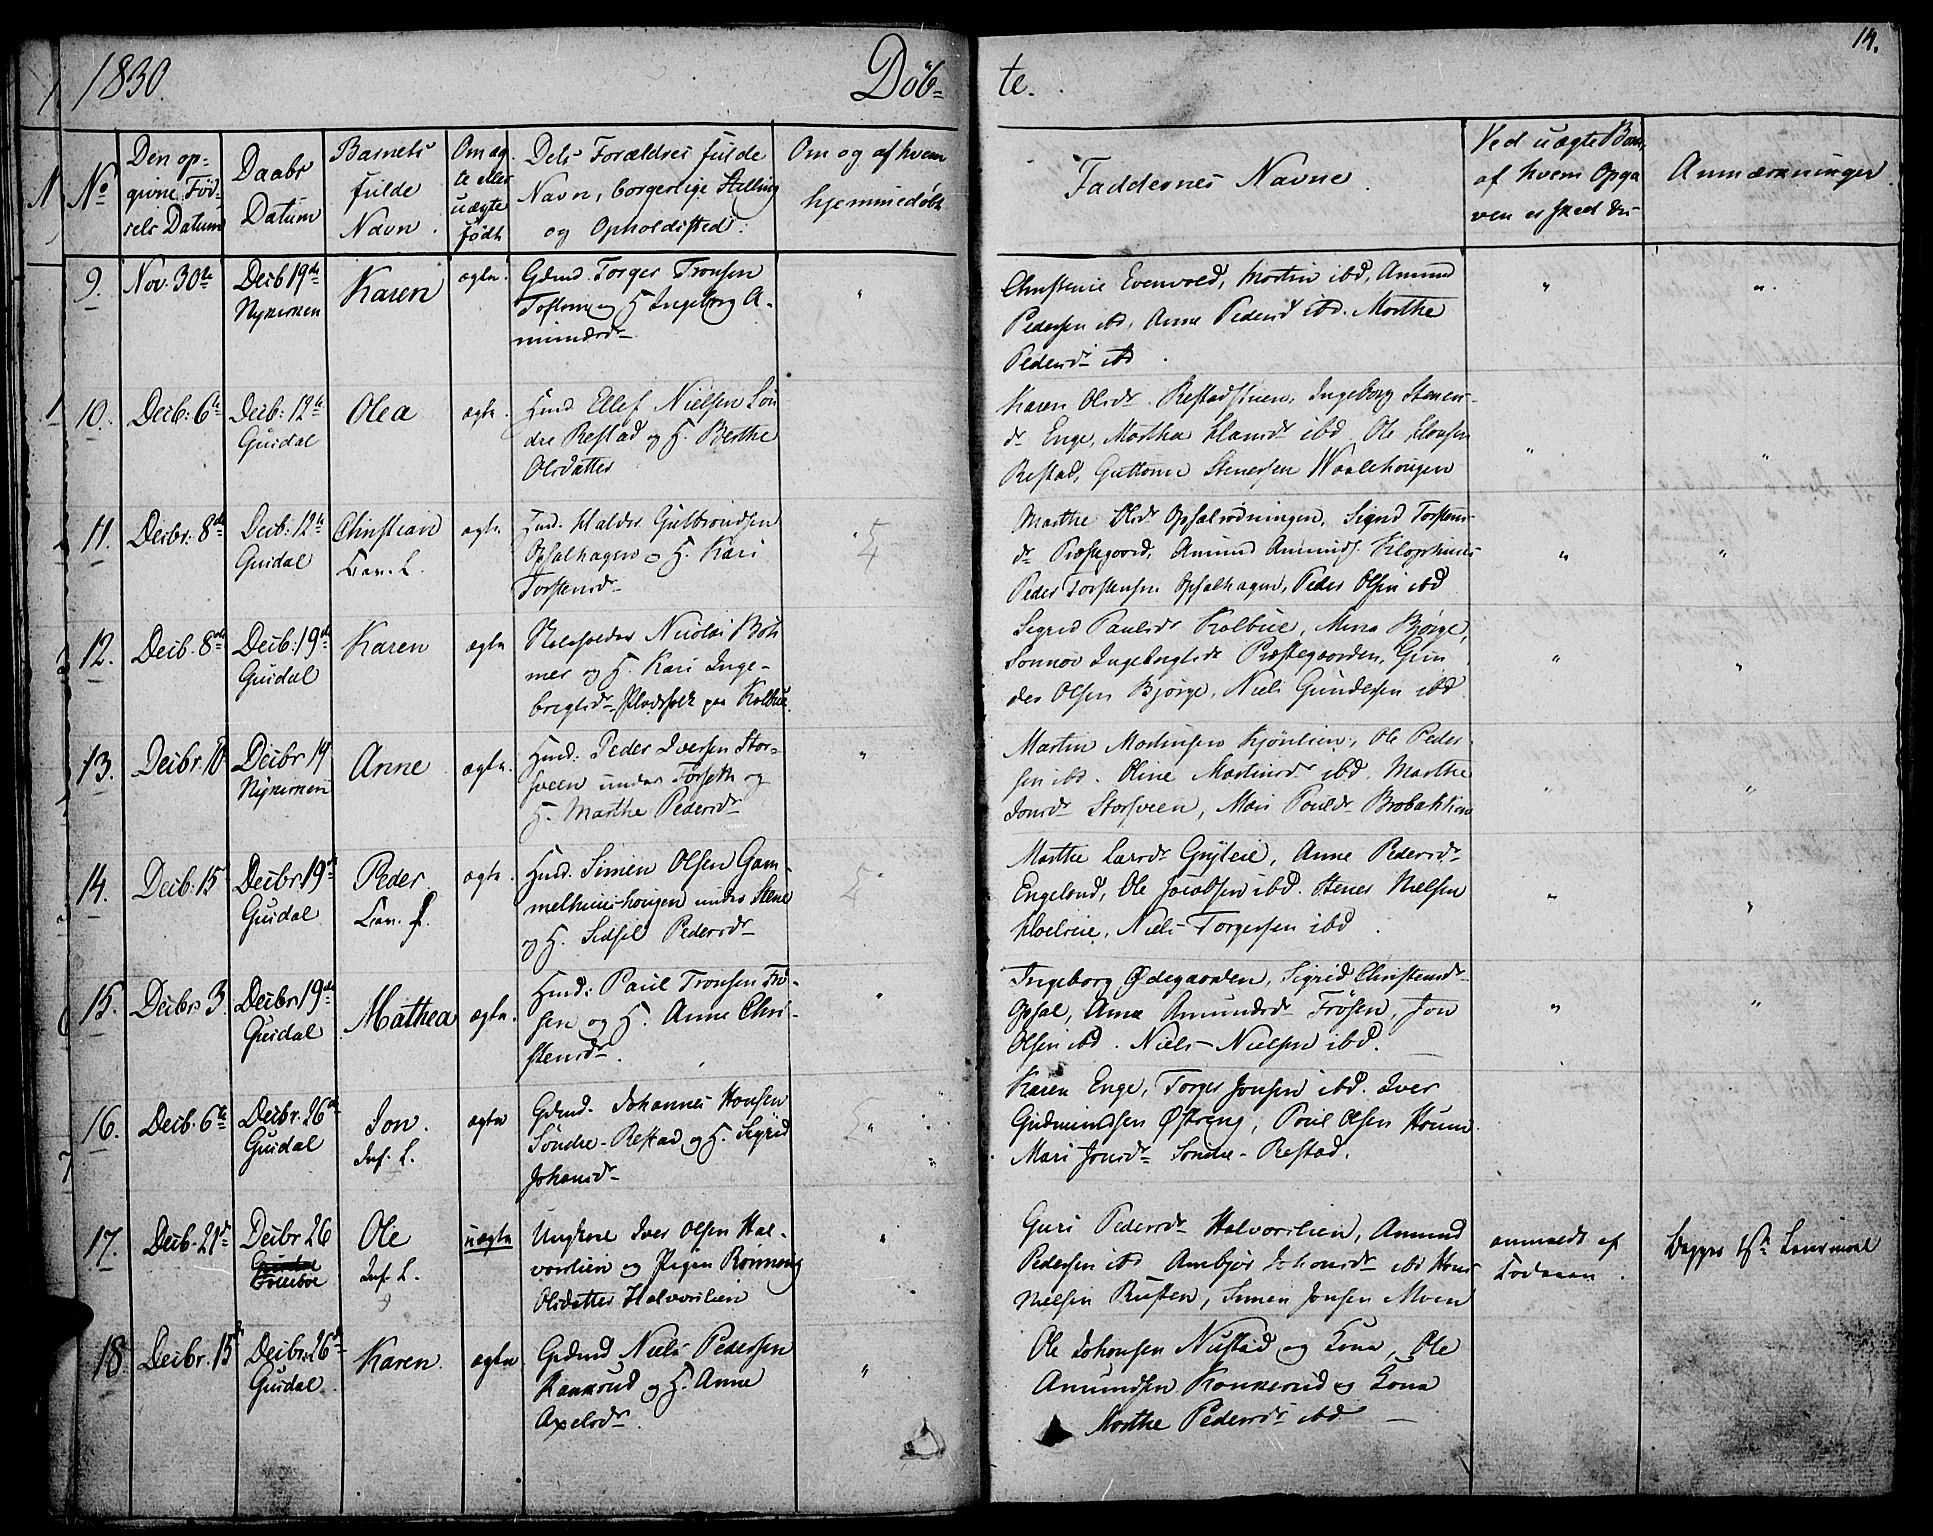 1830.
Döb-
te.
14.
No
Den op-
givne Föd-
sels Datum
Daabs
Datum
Barnets
fulde
Navn.
Om æg-
te eller
uægte
födt
Dets Forældres fulde
Navn, borgerlige Stilling
og Opholdssted.
Om og af hvem
hjemmedöbt
Faddernes Navne.
Ved uægte Barn,
af hvem Opga
ven er skeed
Anmærkninger.
9.
Nov. 30te
Decb 19de
Nykirken
Karen
ægte.
Gdmd. Torger Tronsen
Toftum og H. Ingeborg A-
mundsd.
"
Christence Evenvold, Martin ibd, Amund
Pedersen ibd, Anne Pedersd ibd. Marthe
Pedersd. ibd.
"
"
10.
Decb: 6te
Decb: 12te
Gusdal
Olea
ægte.
Hmd. Ellef Nielsen Sön
dre Restad og H. Berthe
Olsdatter
Karen Olsdr. Restadstuen, Ingeborg Steners-
dr. Enge, Marthea Hansdr. ibd Ole Hansen
Restad, Guttorm Stenersen Waalehougen
"
"
11.
Decbr: 8de
Decb: 12te
Gusdal
Christian
Cav. L.
ægte
Hmd. Halder Gulbrandsen
Opsalhagen og H. Kari
Torstensdr.
Marthe Olsdr. Opsalrodningen, Sigrid Torstens-
dr. Præstegaard, Amund Amunds.
Peder Torstensen Opsalhagen, Peder Olsen ibd
"
"
12.
Decb. 8de
Decb: 19de
Gusdal
Karen
ægte
Nicolai Böh
mer og H. Kari Inge-
brigtsdr. Pladsfolk paa Kolbue.
Sigrid Paulsdr. Kolbue, Mina Bjørge,
Sonnov Ingebrigtsdr. Præstegaarden, Gun
der Olsen Bjørge, Niels Gundersen ibd
"
"
13.
Decbr. 10
Decbr 19
Nykirken
Anne
ægte.
Hmd: Peder Iversen Stor-
sveen under Forseth og
H. Marthe Pedersdr.
"
Martin Mortinsen Kjönlien, Ole Peder-
sen ibd. Oline Martinsdr. ibd. Marthe
Jonsdr. Storsveen, Mari Poulsdr. Brobakken
"
"
14.
Decb. 15
Decbr 19de
Gusdal
Peder.
Cav. L.
ægte.
Hmd. Simen Olsen Gam-
melhuushougen under Steene
og H. Sidsil Pedersdr.
Marthe Larsdr. Grytlie, Anne Pedersdr.
Engeland, Ole Jacobsen ibd. Stener Nielsen
Hoelslie, Niels Torgersen ibd.
"
"
15.
Decbr 3
Decbr 19de
Gusdal
Mathea
ægte.
Hmd: Paul Tronsen Frö-
sen og H. Anne Chri-
stensdr.
"
Ingeborg Ødegaarden, Sigrid Christensdr.
Opsal, Anne Amundsdr. Frösen, Jon
Olsen ibd. Niels Nielsen ibd.
"
"
16.
Decb. 6te
Decbr. 26de
Gusdal
Jon.
Inf. L.
ægte
Gdmd. Johannes Hansen
Söndre-Restad, og H. Sigrid
Johansdr.
"
Karen Enge, Torger Jonsen ibd. Iver
Gudmundsen Østreng, Poul Olsen
Mari Jonsdr. Söndre-Restad.
17.
Decb. 21de
Decbr 26
Ole
Inf. L.
uægte
Ungkarl Iver Olsen Hal-
vorslien og Pigen Rönnoug
Olsdatter Halvorslien
"
Guri Pedersdr. Halvorslien, Amund
Pedersen ibd Ambjör Johansdr. ibd Hans
Nielsen Rusten, Simen Jonsen Moen
anmeldt af
Begges 1ste Leiermaal
18
Decbr. 15de
Decbr. 26de
Gusdal
Karen.
ægte
Gdmd Niels Pedersen
Kankrud og H. Anne
Axelsdr.
"
Ole Johansen Nustad og Kona, Ole
Amundsen Kankerud og Kona
Marthe Pedersdr. ibd